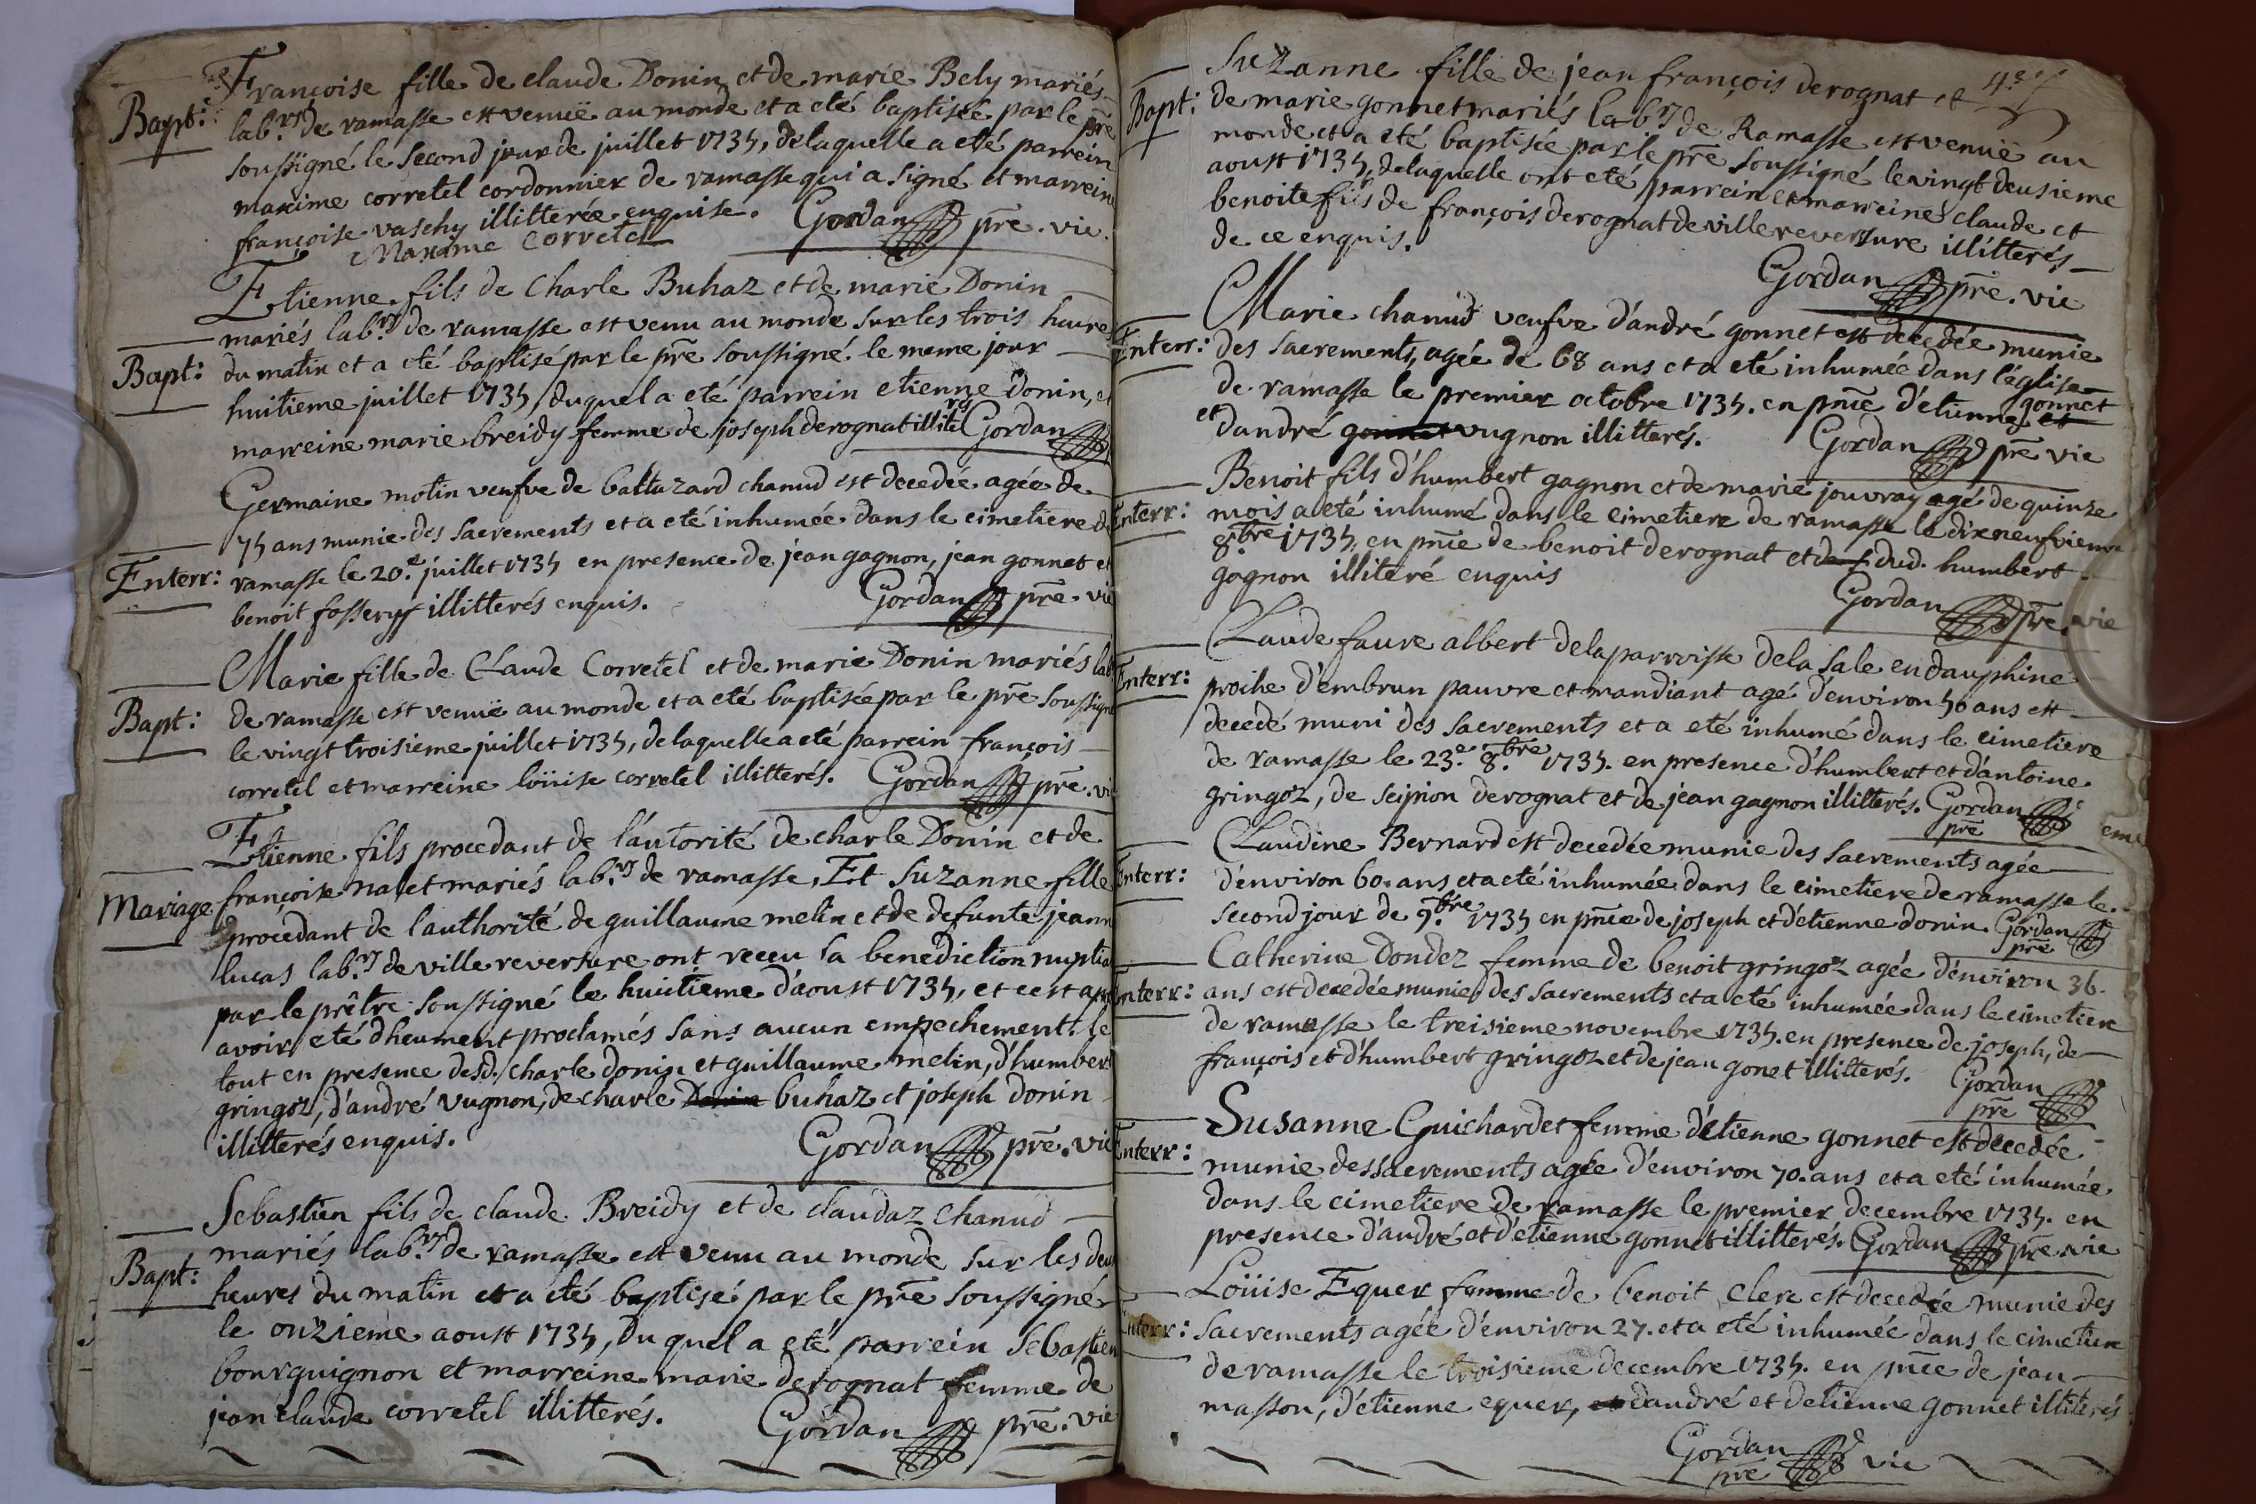 Bapt:
Françoise fille de claude Donin et de marie Bely mariés
lab.rs de ramasse est venuë au monde et a eté baptisée par le pre
soussigné le second jour de juillet 1735, de laquelle a eté parrein
maxime corretel cordonnier de ramasse qui a signé et marreine
françoise vaschy illitterée enquise. Gordan pre. vic.
Maxime Corretel
Bapt:
Etienne fils de Charle Buhaz et de marie Donin
mariés lab.rs de ramasse est venu au monde sur les trois heure
du matin et a eté baptisé par le pre soussigné le meme jour
huitieme juillet 1735, duquel a eté parrein etienne Donin, et
marreine marie breidy femme de joseph derognat illitérés Gordan
Enterr:
Germaine motin veufve de baltazard chanud est decedée agée de
75 ans munie des sacrements et a eté inhumée dans le cimetiere de
ramasse le 20.e juillet 1735 en presence de jean gagnon, jean gonnet et
benoit fossery illitterés enquis. Gordan pre. vic
Bapt:
Marie fille de Claude Corretel et de marie Donin mariés lab
de ramasse est venuë au monde et a eté baptisée par le pre soussigné
le vingt troisieme juillet 1735, de laquelle a eté parrein françois
corretel et marreine loüise corretel illitterés. Gordan pre. vic
Mariage
Etienne fils procedant de l'autorité de charle Donin et de
françoise naset mariés lab.rs de ramasse, Et Suzanne fille
procedant de l'authorité de guillaume melin et de defunte jeanne
lucas lab.rs de villereversure ont receu la benediction nuptia
par le prêtre soussigné le huitieme d'aoust 1735, et ce est après
avoir eté dheument proclamés sans aucun empechement. le
tout en presence desd. charle donin et guillaume melin, d'humbert
gringoz, d'andré vugnon, de charle Donin buhaz et joseph donin
illitterés enquis. Gordan pre. vic
Bapt:
Sebastien fils de claude Breidy et de claudaz Chanud
mariés lab.rs de ramasse est venu au monde sur les deux
heures du matin et a eté baptisé par le pre soussigné
le onzieme aoust 1735, du quel a eté parrein Sebastien
bourguignon et marreine marie derognat femme de
jean claude corretel illitterés. Gordan pre. vic
Bapt:
Suzanne fille de jean françois derognat et
de marie gonnet mariés lab.rs de Ramasse est venuë au
monde et a eté baptisée par le pre soussigné le vingt deusieme
aoust 1735, de laquelle ont eté parrein et marreine claude et
benoite fils de françois derognat de villereversure illitterés
de ce enquis. Gordan pre. vic
Enterr:
Marie chanud veufve d'andré gonnet est decedée munie
des sacrements, agée de 68 ans et a eté inhumée dans l'église
de ramasse le premier octobre 1735. en pnce d'etienne gonnet
et d'andré gonnet vugnon illitterés. Gordan pre vic
Enterr:
Benoit fils d'humbert gagnon et de marie jouvray agé de quinze
mois a eté inhumé dans le cimetiere de ramasse le dix neufvieme
8.bre 1735, en pnce de benoit derognat et dud. humbert
gagnon illiteré enquis Gordan pre. vic
Enterr:
Claude faure albert de la parroisse de la sale en dauphine
proche d'embrun pauvre et mandiant agé d'environ 50 ans est
decedé muni des sacrements et a eté inhumé dans le cimetiere
de ramasse le 23.e 8.bre 1735. en presence d'humbert et d'antoine
gringoz, de scipion derognat et de jean gagnon illitterés. Gordan
pre
Enterr:
Claudine Bernard est decedée munie des sacrements agée
d'environ 60. ans et a eté inhumée dans le cimetiere de ramasse le
second jour de 9.bre 1735 en pnce de joseph et d'etienne donin. Gordan
pre
Enterr:
Catherine Dondez femme de benoit gringoz agée d'environ 36.
ans est decedée munie des sacrements et a eté inhumée dans le cimetiere
de ramasse le treisieme novembre 1735. en presence de joseph, de
françois et d'humbert gringoz et de jean gonet illitterés. Gordan
pre
Enterr:
Susanne Guichardet femme d'etienne gonnet est decedée
munie des sacrements agée d'environ 70. ans et a eté inhumée
dans le cimetiere de ramasse le premier decembre 1735. en
presence d'andré et d'etienne gonnet illitterés. Gordan pre. vic
Enterr:
Loüise Equer femme de benoit clerc est decedée munie des
sacrements agée d'environ 27. et a eté inhumée dans le cimetiere
de ramasse le troisieme decembre 1735. en pnce de jean
masson, d'etienne equer, et d'andré et d'etienne gonnet illiterés
Gordan
pre vic